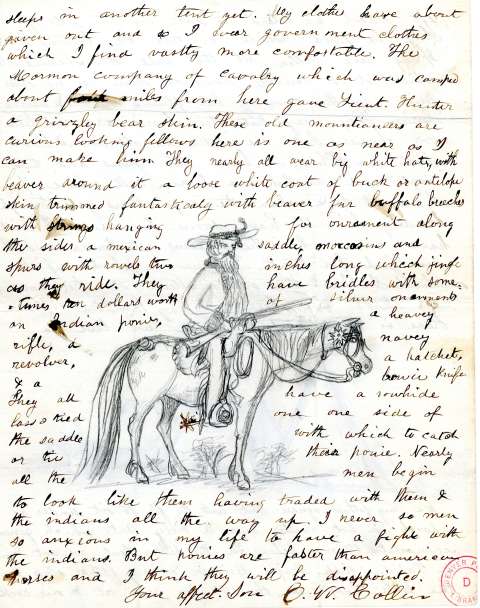 sleeps in another tent yet. My clothes have about
given out and so I wear government clothes
which I find vastly more comfortable. The
Mormon company of cavalry which was camped
about miles from here gave Lieut. Hunter
a grizzly bear skin. These old mountianders are
curious looking fellows here is one as near as I
can make him They nearly all wear big white hats, with
beaver around it a loose white coat of buck or antelope
skin trimmed fantasticaly with beaver fur buffalo breeches
with strings hanging for ournament along
the sides a merican saddle, moccosins and
spurs with rowels two inches long which jingle
as they ride. They have bridles with some-
-times ten dollars worth of silver onarments
on Indian ponie, a heavey
rifle, a navey
revolver, a hatchet,
& a bowie Knife
They all have a rawhide
lasso tied one one side of
the saddle with which to catch
or tie their ponie. Nearly
all the men begin
to look like them having traded with them &
the indians all the way up. I never so men
so anxious in my life to have a fight with
the indians. But ponies are faster than american
horses and I think they will be disappointed.
Your affect. Son C. W. Collin
D